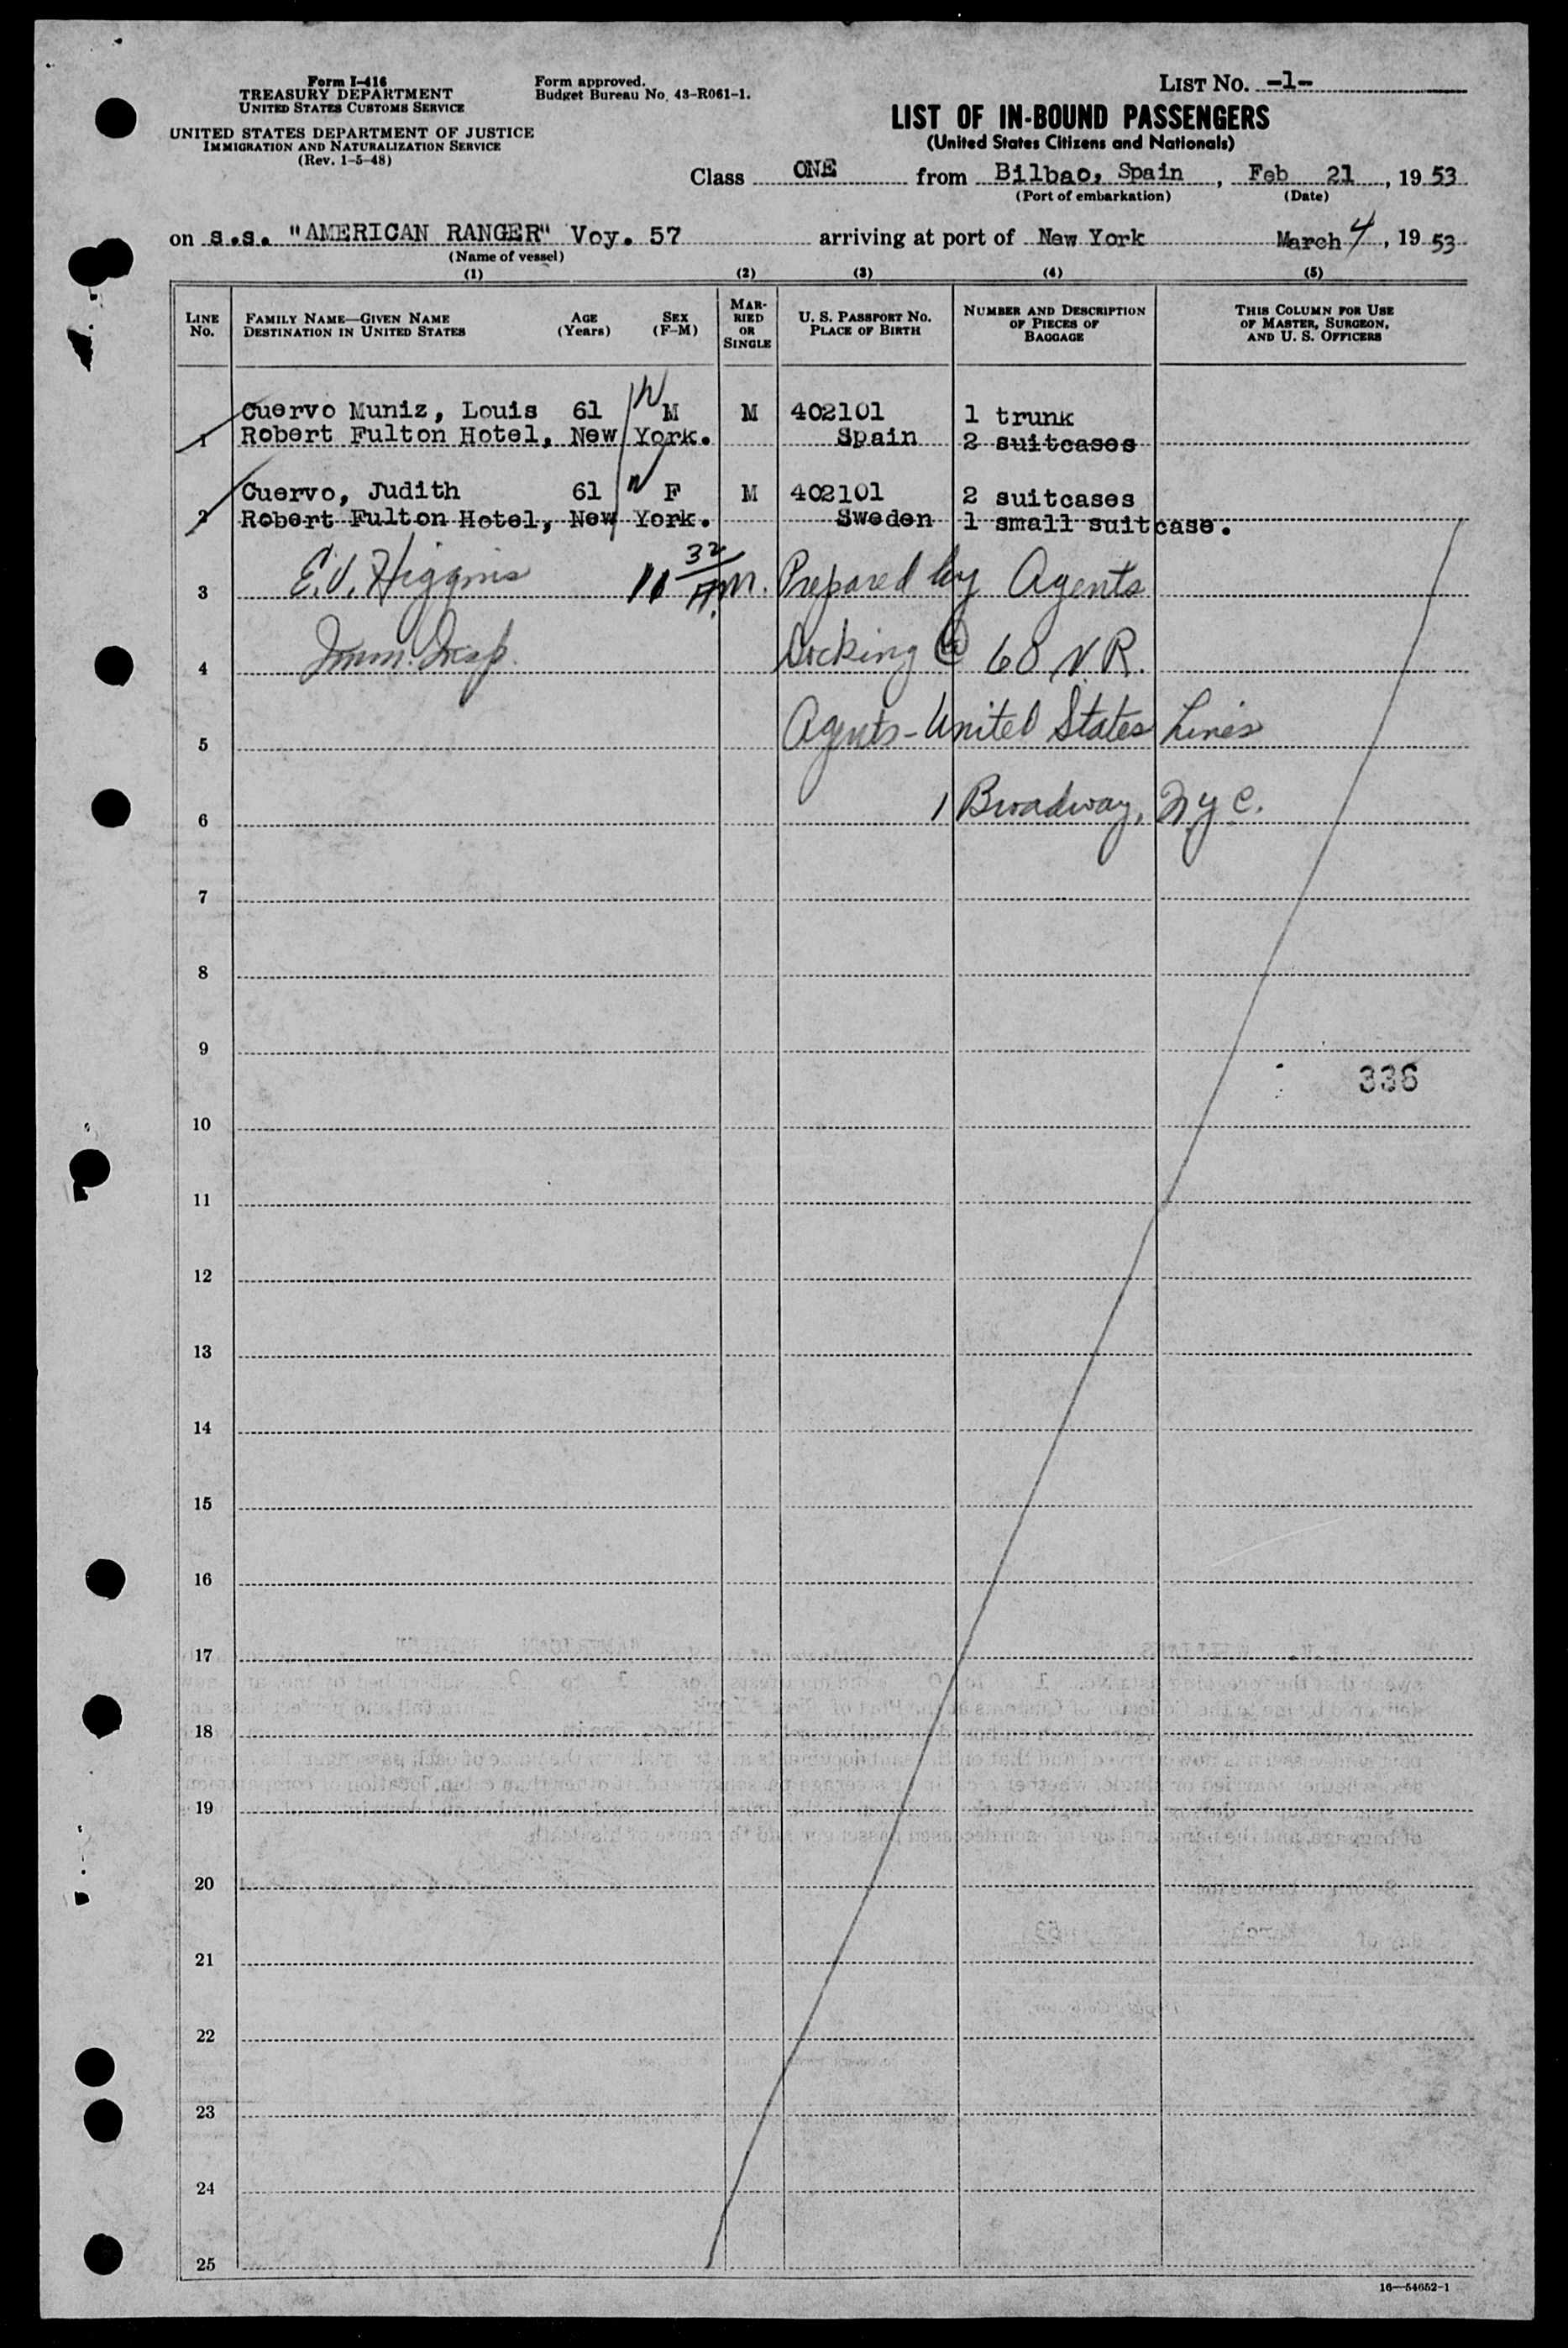 Form I-416
TREASURY DEPARTMENT
UNITED STATES CUSTOMS SERVICE
UNITED STATES DEPARTMENT OF JUSTICE
IMMIGRATION AND NATURALIZATION SERVICE
(Rev. 1-5-48)
Form approved.
Budget Bureau No. 43-R061-1.
LIST No. -1-
LIST OF IN-BOUND PASSENGERS
(United States Citizens and Nationals)
Class ONE from Bilbao, Spain, Feb 21, 1953
(Port of embarkation) (Date)
on s.s. "AMERICAN RANGER" Voy. 57 arriving at port of New York March 4, 1953
(Name of vessel)
(1) (2) (3) (4) (5)
LINE No.
FAMILY NAME—GIVEN NAME
DESTINATION IN UNITED STATES
AGE (Years)
SEX (F-M)
MARRIED OR SINGLE
U. S. PASSPORT No.
PLACE OF BIRTH
NUMBER AND DESCRIPTION OF PIECES OF BAGGAGE
THIS COLUMN FOR USE OF MASTER, SURGEON, AND U. S. OFFICERS
Cuervo Muniz, Louis 61 M M 402101 1 trunk
1 Robert Fulton Hotel, New York. Spain 2 suitcases
Cuervo, Judith 61 F M 402101 2 suitcases
2 Robert Fulton Hotel, New York. Sweden 1 small suitcase.
3 E.V. Higgins 11 32 A.M. Prepared by Agents
4 Imm. Insp. Docking @ 60 N.R.
5 Agents - United States Lines
6 1 Broadway, N.Y.C.
7
8
9
336
10
11
12
13
14
15
16
17
18
19
20
21
22
23
24
25
16—54652-1